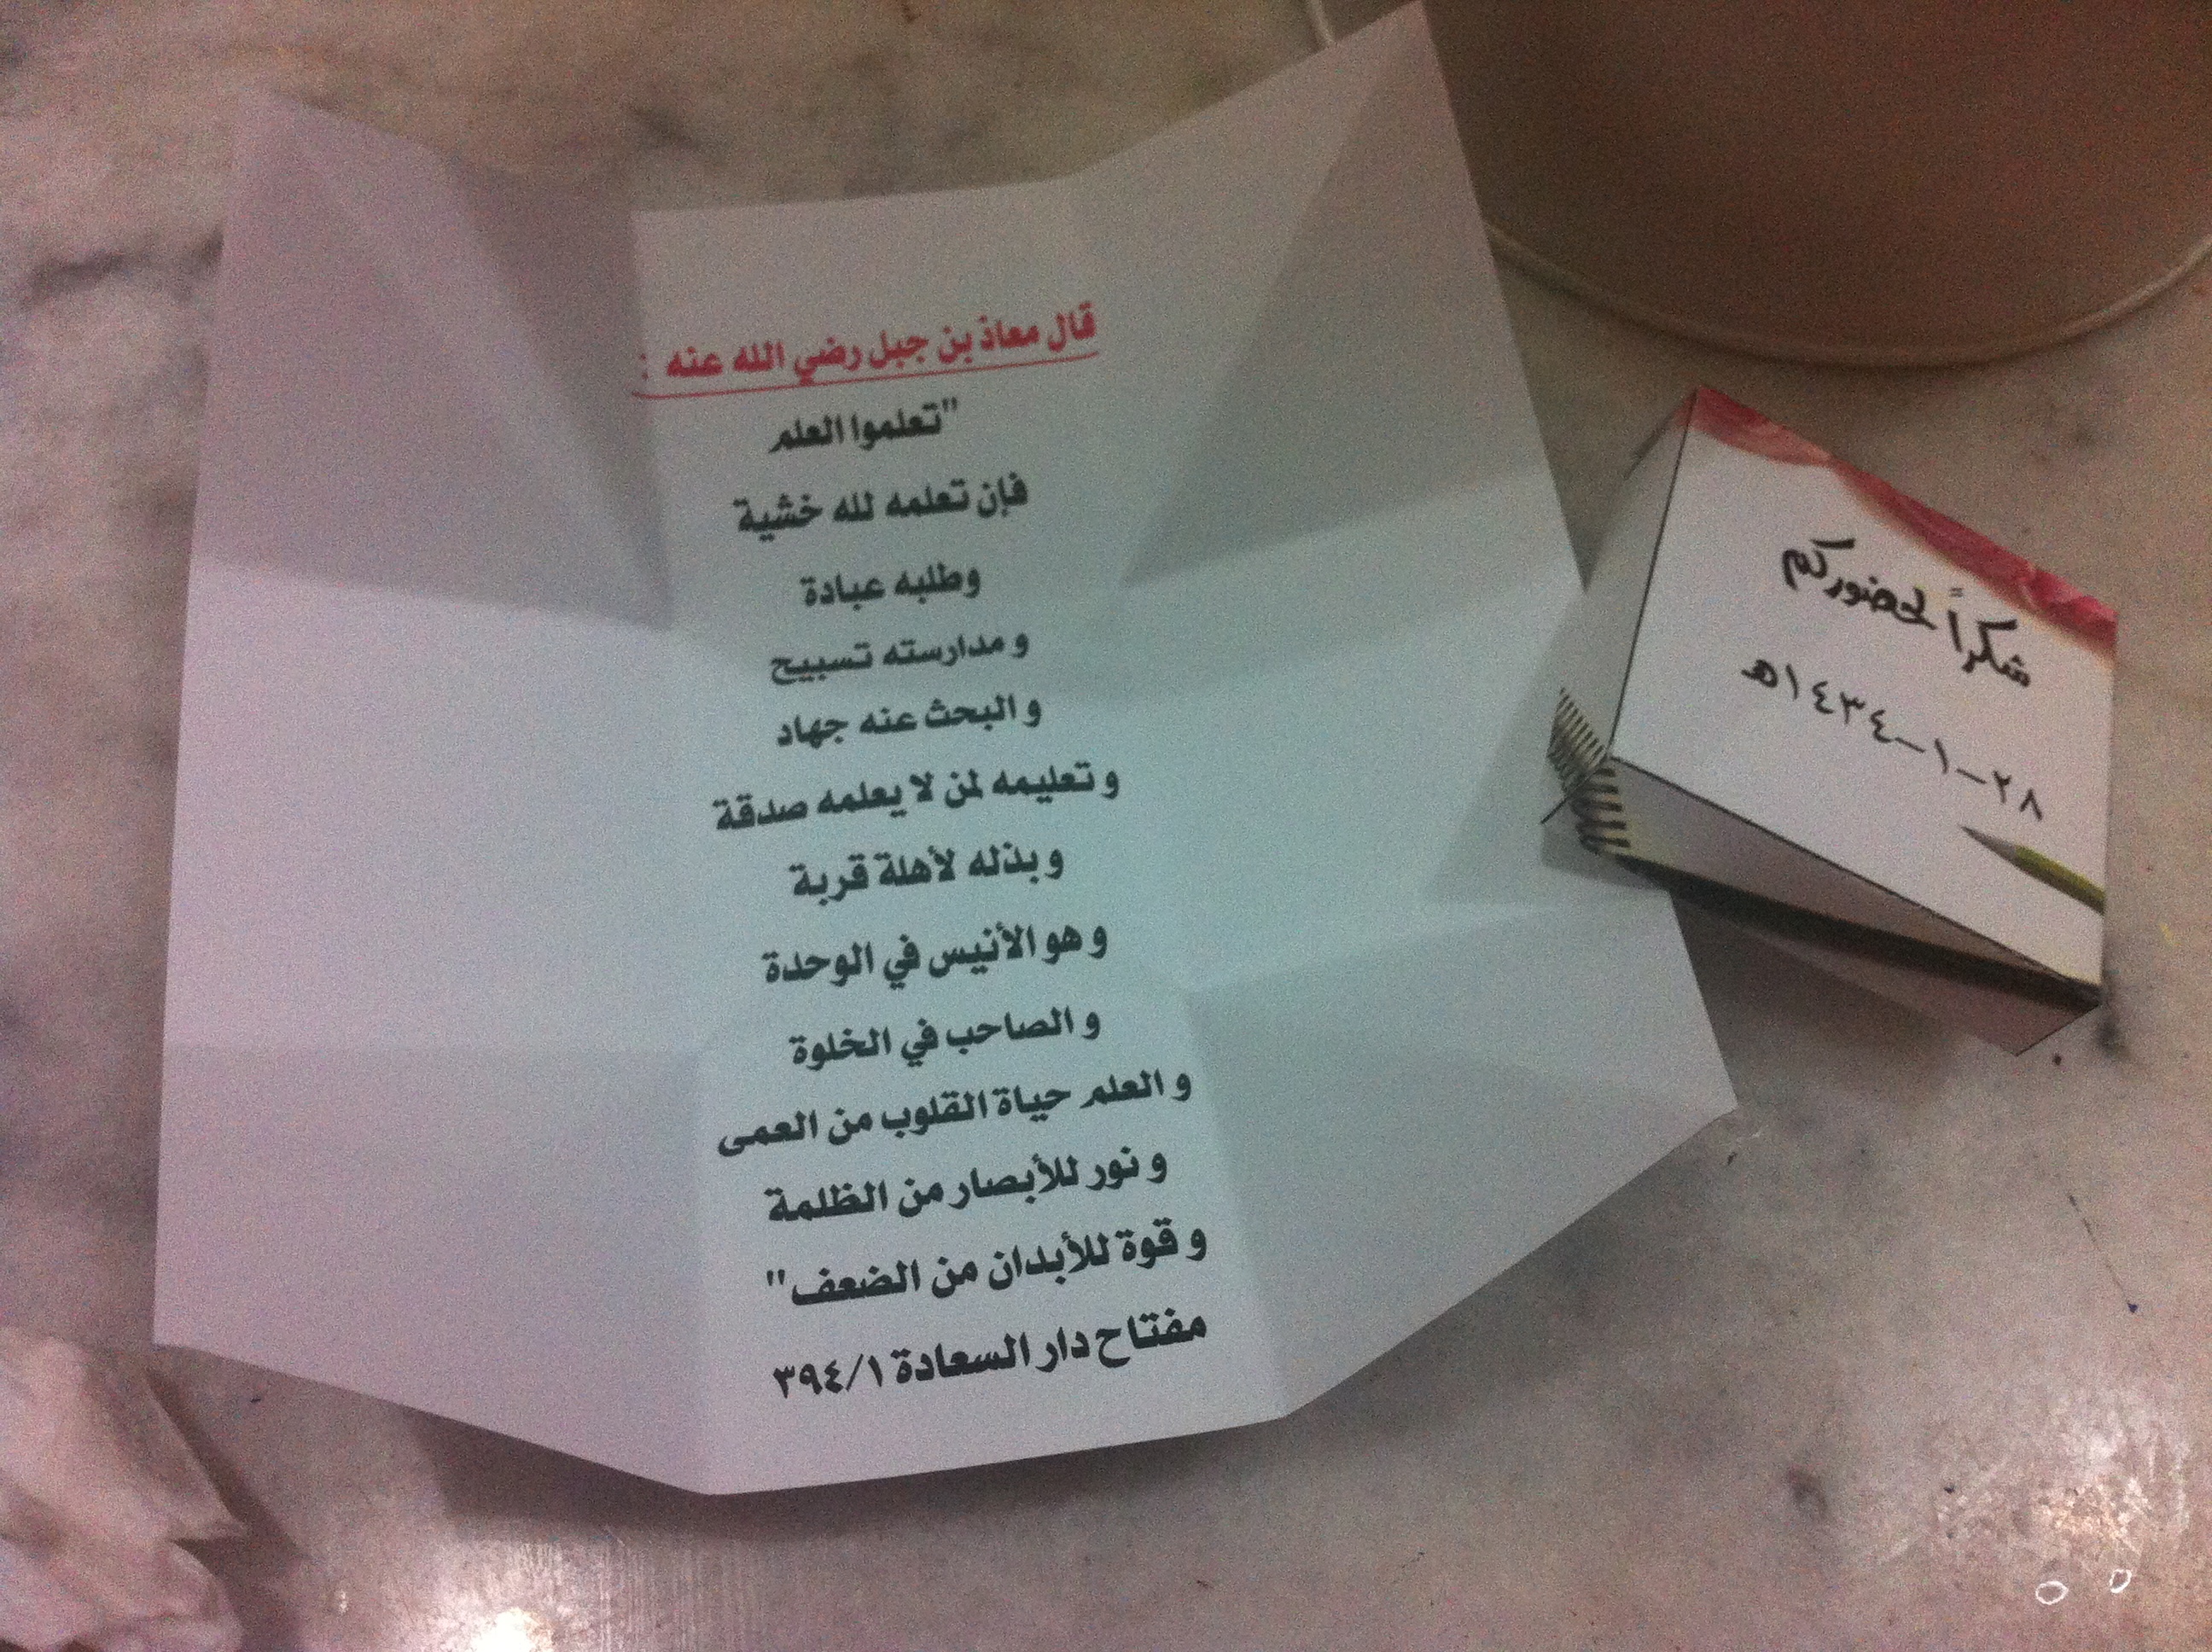 قال معاذ بن جبل رضي الله عنه :
"تعلموا العلم
فإن تعلمه لله خشية
وطلبه عبادة
و مدارسته تسبيح
و البحث عنه جهاد
و تعليمه لمن لا يعلمه صدقة
و بذله لأهلة قربة
و هو الأنيس في الوحدة
و الصاحب في الخلوة
و العلم حياة القلوب من العمى
و نور للأبصار من الظلمة
و قوة للأبدان من الضعف"
مفتاح دار السعادة ٣٩٤/١
شكراً لحضوركم
٢٨-١-١٤٣٤هـ